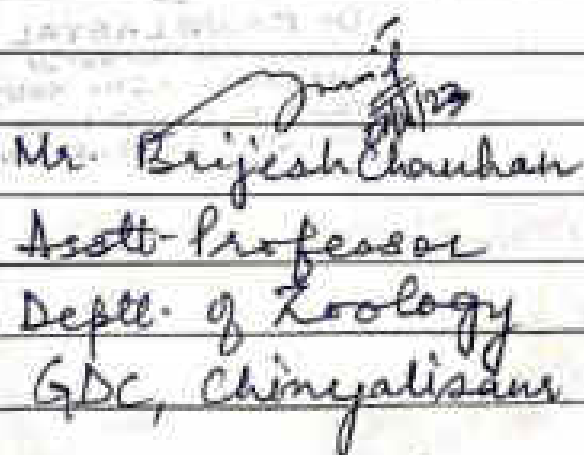 Mr. Brijesh Chauhan
Asstt. Professor
Deptt. of Zoology
GDC, Chinyalisaur